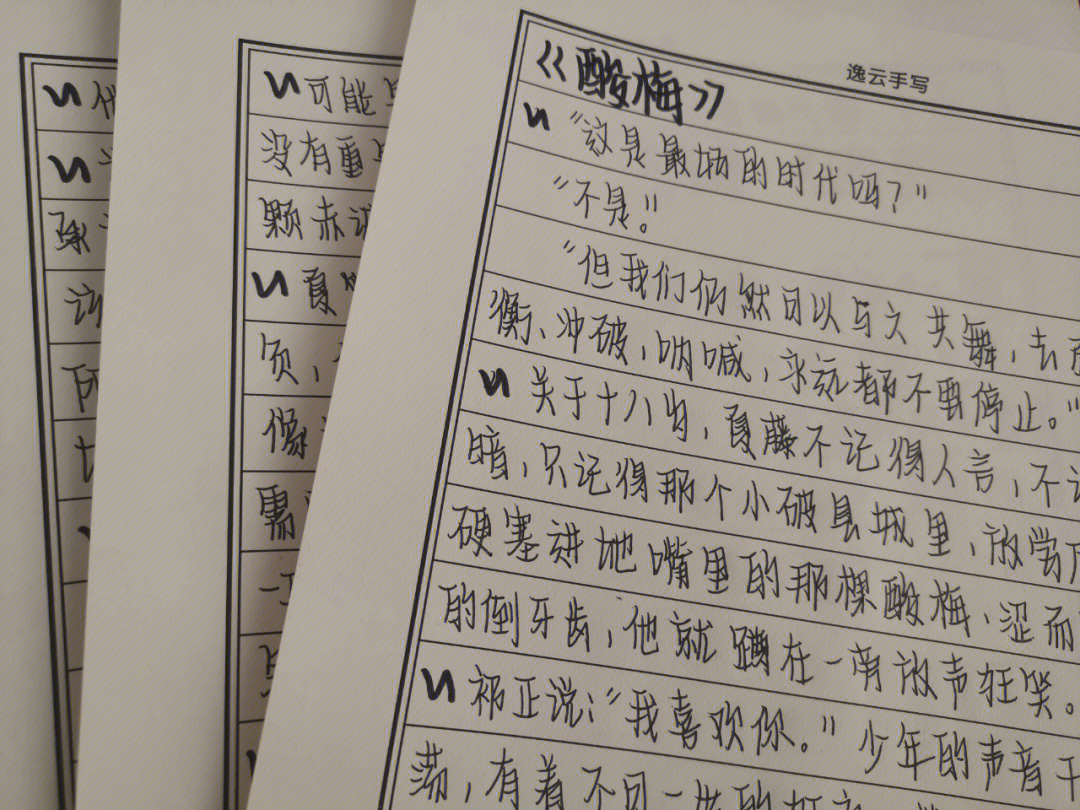 逸云手写
《酸梅》
“这是最坏的时代吗？”
“不是。”
“但我们仍然可以与之共舞，去
衡、冲破，呐喊，永远都不要停止。”
关于十八岁，夏藤不记得人言，不
暗，只记得那个小破县城里，放学
硬塞进她嘴里的那棵酸梅，涩而
的倒牙齿，他就蹲在一旁放声狂笑。
祁正说：“我喜欢你。”少年的声音干
荡，有着不同一
可能
没有重
颗赤诚
夏
负，
像
需
一